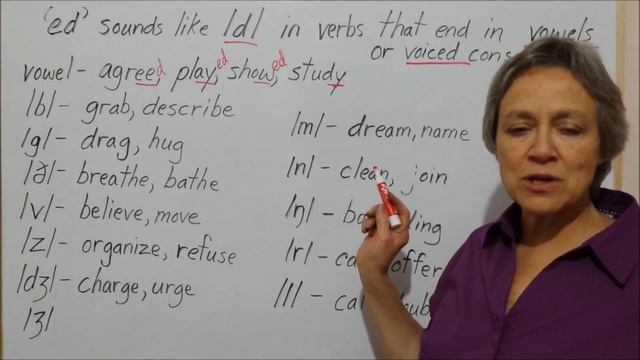 'ed' sounds like /d/ in verbs that end in vowels
or voiced cons
vowel - agreed, played, showed, study
/b/ - grab, describe
/g/ - drag, hug
/ð/ - breathe, bathe
/v/ - believe, move
/z/ - organize, refuse
/dʒ/ - charge, urge
/ʒ/
/m/ - dream, name
/n/ - clean, join
/ŋ/ -
/r/ - offer
/l/ -